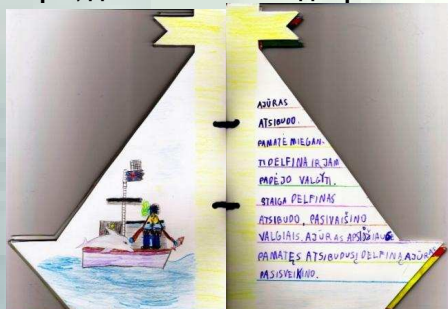 AJŪRAS
ATSIBUDO.
PAMATĖ MIEGAN.
TĮ DELFINĄ IR JAM
PADĖJO VALGYTI.
STAIGA DELFINAS
ATSIBUDO, PASIVAIŠINO
VALGIAIS. AJŪRAS APSIDŽIAUGĖ
PAMATĘS ATSIBUDUSĮ DELFINĄ. AJŪRAS
PASISVEIKINO.